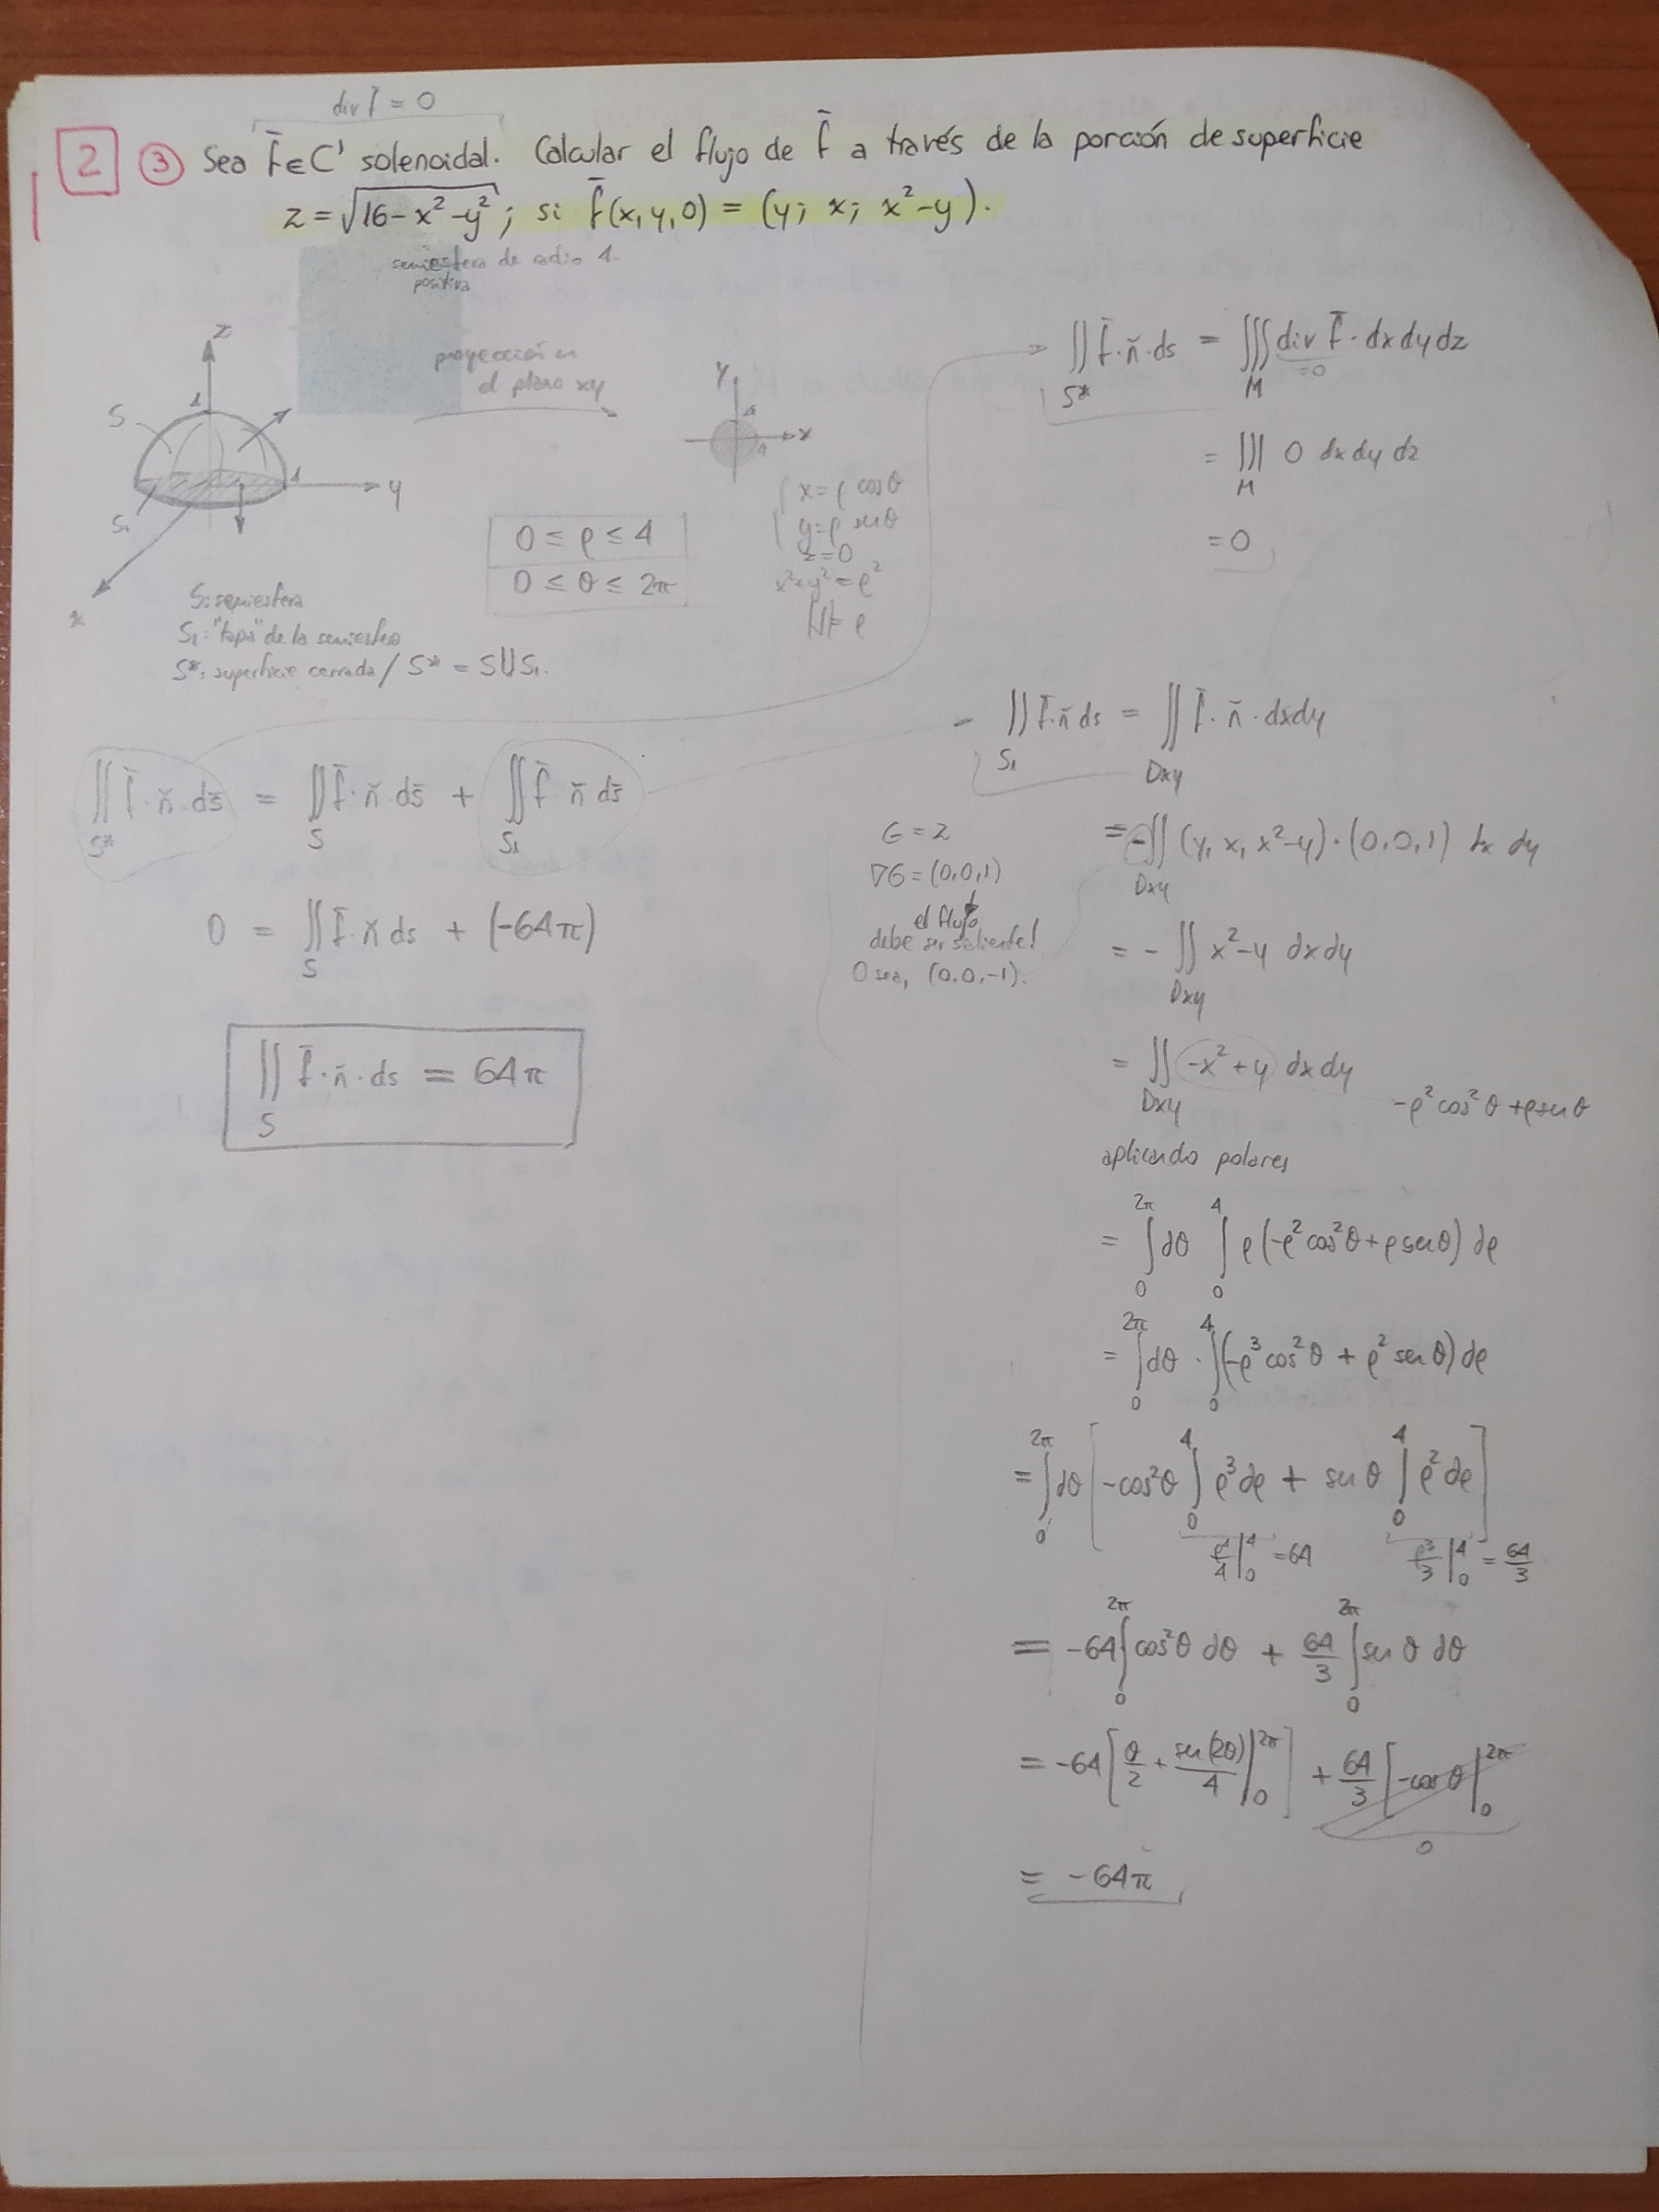 div f̄ = 0
2 ③ Sea f̄ ∈ C¹ solenoidal. Calcular el flujo de f̄ a través de la porción de superficie
z = √(16 - x² - y²); si f̄(x, y, 0) = (y; x; x² - y).
semiesfera de radio 4.
positiva
proyección en
el plano xy
z
S
4
4
y
S₁
x
y
4
x
4
0 ≤ ρ ≤ 4
0 ≤ θ ≤ 2π
x = ρ cosθ
y = ρ senθ
z = 0
x² + y² = ρ²
|J| = ρ
S: semiesfera
S₁: "tapa" de la semiesfera
S*: superficie cerrada / S* = S∪S₁.
∬_S* f̄ · ň · ds = ∭_M div f̄ · dx dy dz
=0
= ∭_M 0 dx dy dz
= 0
∬_S* f̄ · ň · ds̄ = ∬_S f̄ · ň · ds̄ + ∬_S₁ f̄ ň ds̄
0 = ∬_S f̄ · ň ds + (-64π)
∬_S f̄ · ň · ds = 64π
- ∬_S₁ f̄ · ň ds = ∬_Dxy f̄ · ň · dxdy
G = z
∇G = (0,0,1)
el flujo
debe ser saliente!
O sea, (0,0,-1).
= - ∬_Dxy (y, x, x² - y) · (0,0,1) dx dy
= - ∬_Dxy x² - y dx dy
= ∬_Dxy -x² + y dx dy
-ρ² cos² θ + ρ sen θ
aplicando polares
= ∫₀^2π dθ ∫₀^4 ρ (-ρ² cos² θ + ρ sen θ) dρ
= ∫₀^2π dθ · ∫₀^4 (-ρ³ cos² θ + ρ² sen θ) dρ
= ∫₀^2π dθ [-cos² θ ∫₀^4 ρ³ dρ + sen θ ∫₀^4 ρ² dρ]
ρ⁴/4 |₀^4 = 64
ρ³/3 |₀^4 = 64/3
= -64 ∫₀^2π cos² θ dθ + 64/3 ∫₀^2π sen θ dθ
= -64 [θ/2 + sen(2θ)/4 |₀^2π] + 64/3 [-cos θ |₀^2π
0
= -64π